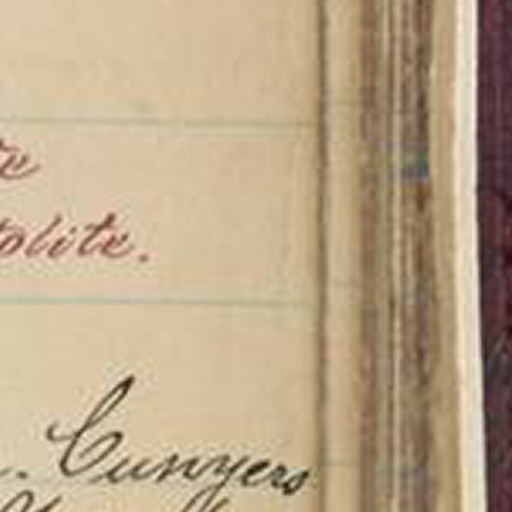 te
plite.
. Cunyers